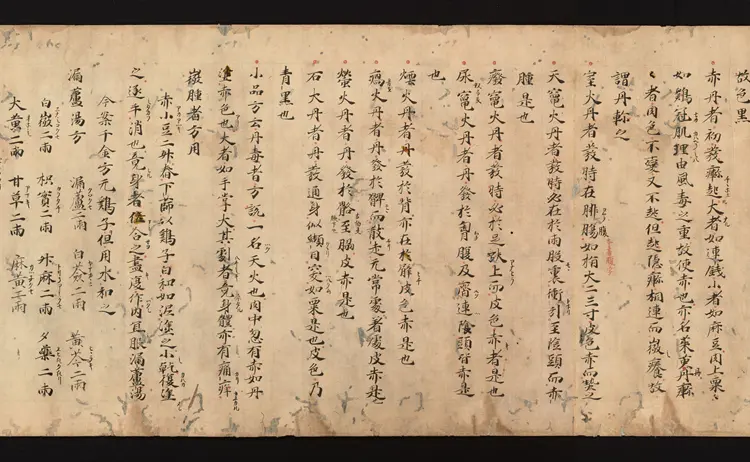 故色黒
赤丹者初發癮起大者如連錢小者如麻豆肉上粟々
如鶏冠肌理由風毒之重故使赤也亦名茱萸丹癬
々者肉色不變又不熱但起隱癬相連而微癢故
謂丹軫之
室火丹者發時在腓腸如指大二三寸皮色赤而熱之
天竈火丹者發時必在於兩股裏衝引至陰頭而赤
腫是也
廢竈火丹者發時必於足趺上而皮色赤者是也
尿竈火丹者丹發於胷腹及齊連陰頭皆赤是
也
熛火丹者丹發於背亦在於髀皮色赤是也
癘火丹者丹發於髀而散走无常處著處皮赤是
螢火丹者丹發於骼至脇皮赤是也
石火丹者丹發通身似纈目突如粟是也皮色乃
青黒也
小品方云丹毒者方説一名天火也肉中忽有赤如丹
塗赤色也大者如手掌大其劇者竟身體亦有痛痒
微腫者方用
赤小豆二升舂下篩以鶏子白和如泥塗之小乾復塗
之逐手消也竟身者倍合之盡復作肉宜服漏蘆湯
今案千金方无鶏子但用水和之
漏蘆湯方 漏蘆二兩 白薟二兩 黄芩二兩
白薇二兩 枳實二兩 升麻二兩 夕藥二兩
大黄二兩 甘草二兩 麻黄二兩